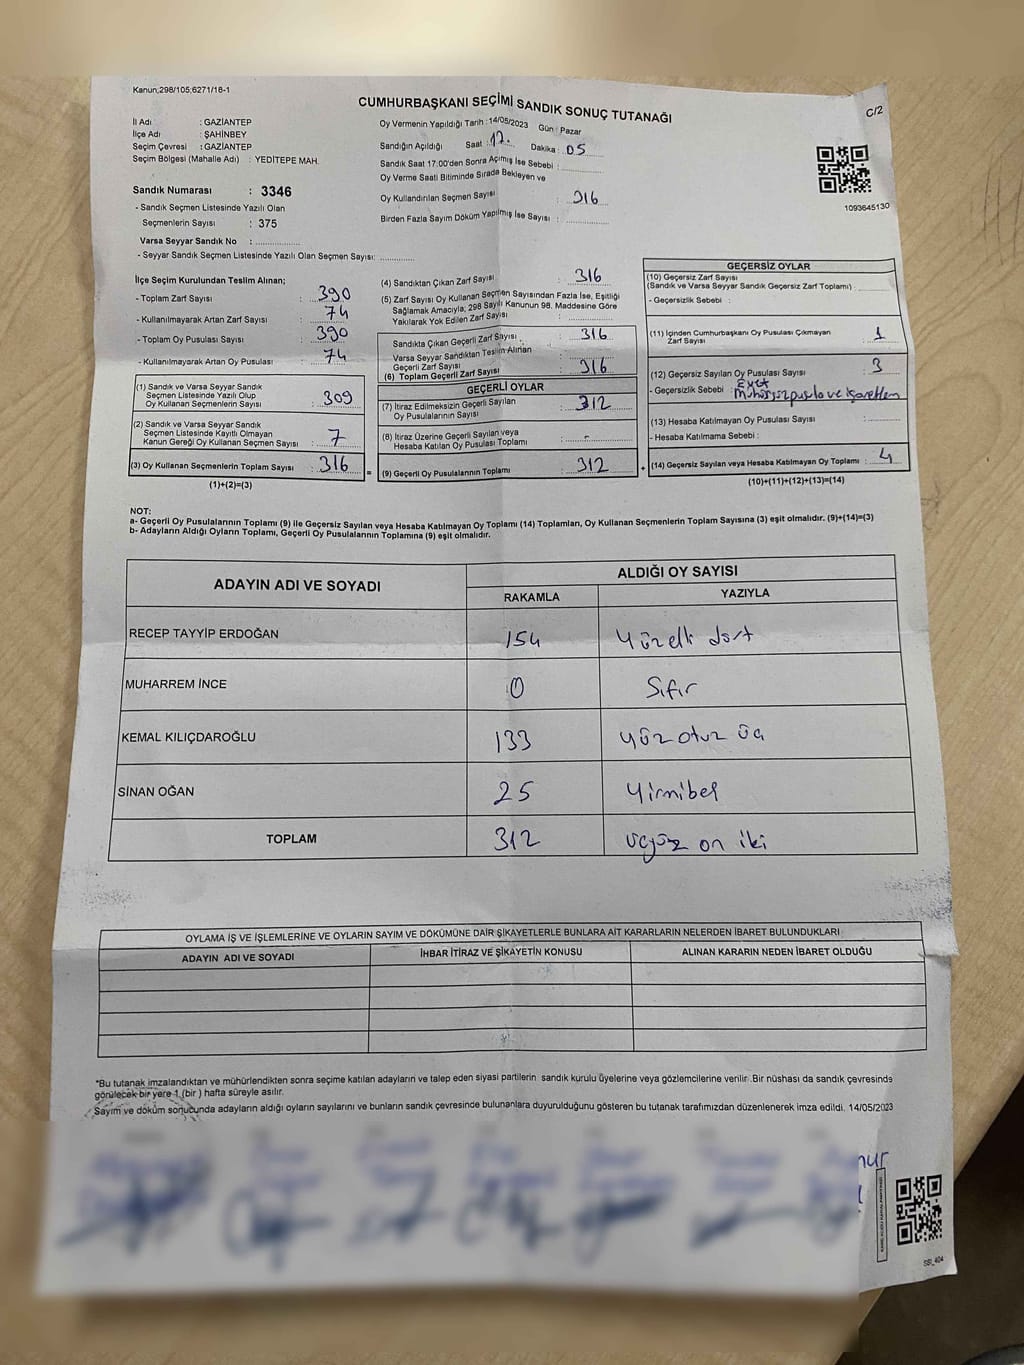 Kanun,298/105;6271/16-1
CUMHURBAŞKANI SEÇİMİ SANDIK SONUÇ TUTANAĞI
C/2
İl Adı : GAZİANTEP
İlçe Adı : ŞAHİNBEY
Seçim Çevresi : GAZİANTEP
Seçim Bölgesi (Mahalle Adı) : YEDİTEPE MAH.
Sandık Numarası : 3346
- Sandık Seçmen Listesinde Yazılı Olan
Seçmenlerin Sayısı : 375
Varsa Seyyar Sandık No : ..............
- Seyyar Sandık Seçmen Listesinde Yazılı Olan Seçmen Sayısı: ............
Oy Vermenin Yapıldığı Tarih :14/05/2023 Gün : Pazar
Sandığın Açıldığı Saat : 17. Dakika : 05
Sandık Saat 17:00'den Sonra Açılmış İse Sebebi : ............
Oy Verme Saati Bitiminde Sırada Bekleyen ve
Oy Kullandırılan Seçmen Sayısı : 316
Birden Fazla Sayım Döküm Yapılmış İse Sayısı : ............
1093645130
İlçe Seçim Kurulundan Teslim Alınan;
- Toplam Zarf Sayısı : 390
- Kullanılmayarak Artan Zarf Sayısı : 74
- Toplam Oy Pusulası Sayısı : 390
- Kullanılmayarak Artan Oy Pusulası : 74
(1) Sandık ve Varsa Seyyar Sandık
Seçmen Listesinde Yazılı Olup
Oy Kullanan Seçmenlerin Sayısı : 309
(2) Sandık ve Varsa Seyyar Sandık
Seçmen Listesinde Kayıtlı Olmayan
Kanun Gereği Oy Kullanan Seçmen Sayısı : 7
(3) Oy Kullanan Seçmenlerin Toplam Sayısı : 316
(1)+(2)=(3)
(4) Sandıktan Çıkan Zarf Sayısı : 316
(5) Zarf Sayısı Oy Kullanan Seçmen Sayısından Fazla İse, Eşitliği
Sağlamak Amacıyla; 298 Sayılı Kanunun 98. Maddesine Göre
Yakılarak Yok Edilen Zarf Sayısı : ............
Sandıkta Çıkan Geçerli Zarf Sayısı : 316
Varsa Seyyar Sandıktan Teslim Alınan
Geçerli Zarf Sayısı
(6) Toplam Geçerli Zarf Sayısı : 316
GEÇERLİ OYLAR
(7) İtiraz Edilmeksizin Geçerli Sayılan
Oy Pusulalarının Sayısı : 312
(8) İtiraz Üzerine Geçerli Sayılan veya
Hesaba Katılan Oy Pusulası Toplamı : -
= (9) Geçerli Oy Pusulalarının Toplamı : 312
GEÇERSİZ OYLAR
(10) Geçersiz Zarf Sayısı
(Sandık ve Varsa Seyyar Sandık Geçersiz Zarf Toplamı) : ............
- Geçersizlik Sebebi :
(11) İçinden Cumhurbaşkanı Oy Pusulası Çıkmayan
Zarf Sayısı : 1
(12) Geçersiz Sayılan Oy Pusulası Sayısı : 3
- Geçersizlik Sebebi : Evet
Mühürsüz pusula ve işaretlen
(13) Hesaba Katılmayan Oy Pusulası Sayısı : ............
- Hesaba Katılmama Sebebi :
+ (14) Geçersiz Sayılan veya Hesaba Katılmayan Oy Toplamı : 4
(10)+(11)+(12)+(13)=(14)
NOT:
a- Geçerli Oy Pusulalarının Toplamı (9) ile Geçersiz Sayılan veya Hesaba Katılmayan Oy Toplamı (14) Toplamları, Oy Kullanan Seçmenlerin Toplam Sayısına (3) eşit olmalıdır. (9)+(14)=(3)
b- Adayların Aldığı Oyların Toplamı, Geçerli Oy Pusulalarının Toplamına (9) eşit olmalıdır.
ADAYIN ADI VE SOYADI ALDIĞI OY SAYISI
RAKAMLA YAZIYLA
RECEP TAYYİP ERDOĞAN 154 Yüzelli dört
MUHARREM İNCE 0 Sıfır
KEMAL KILIÇDAROĞLU 133 yüz otuz üç
SİNAN OĞAN 25 Yirmibeş
TOPLAM 312 üçyüz on iki
OYLAMA İŞ VE İŞLEMLERİNE VE OYLARIN SAYIM VE DÖKÜMÜNE DAİR ŞİKAYETLERLE BUNLARA AİT KARARLARIN NELERDEN İBARET BULUNDUKLARI
ADAYIN ADI VE SOYADI İHBAR İTİRAZ VE ŞİKAYETİN KONUSU ALINAN KARARIN NEDEN İBARET OLDUĞU
*Bu tutanak imzalandıktan ve mühürlendikten sonra seçime katılan adayların ve talep eden siyasi partilerin sandık kurulu üyelerine veya gözlemcilerine verilir. Bir nüshası da sandık çevresinde
görülecek bir yere 1 (bir ) hafta süreyle asılır.
Sayım ve döküm sonucunda adayların aldığı oyların sayılarını ve bunların sandık çevresinde bulunanlara duyurulduğunu gösteren bu tutanak tarafımızdan düzenlenerek imza edildi. 14/05/2023
SSI_404